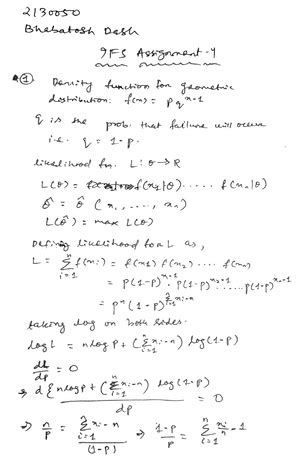 2130050
Bhabatosh Dash
IFS Assignment-4
① Density function for geometric
distribution: f(x) = p q^(x-1)
q is the prob. that failure will occur
i.e. q = 1-p.
likelihood fn. L: θ → R
L(θ) = f(x1|θ)..... f(xn|θ)
θ̂ = θ̂ (x1, ...., xn)
L(θ̂) = max L(θ)
Defining likelihood for L as,
L = Σ_{i=1}^{n} f(xi) = f(x1) f(x2)..... f(xn)
= p(1-p)^(x1-1) . p(1-p)^(x2-1) ..... p(1-p)^(xn-1)
= p^n (1-p)^(Σ_{i=1}^{n} xi-n)
taking log on both sides.
log L = n log p + (Σ_{i=1}^{n} xi-n) log(1-p)
dL/dp = 0
⇒ d{n log p + (Σ_{i=1}^{n} xi-n) log(1-p)}/dp = 0
⇒ n/p = (Σ_{i=1}^{n} xi-n)/(1-p) ⇒ (1-p)/p = Σ_{i=1}^{n} xi/n - 1